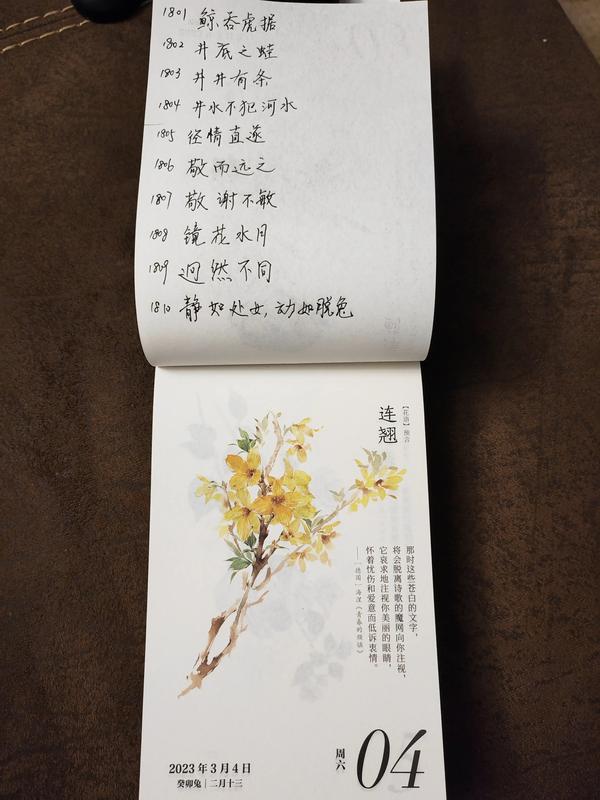 1801 鲸吞虎据
1802 井底之蛙
1803 井井有条
1804 井水不犯河水
1805 径情直遂
1806 敬而远之
1807 敬谢不敏
1808 镜花水月
1809 迥然不同
1810 静如处女,动如脱兔
连翘
【花语】预言
那时这些苍白的文字,
将会脱离诗歌的魔网向你注视,
它哀求地注视你美丽的眼睛,
怀着忧伤和爱意而低诉衷情。
——[德国]海涅《青春的烦恼》
2023年3月4日
癸卯兔|二月十三
周六
04